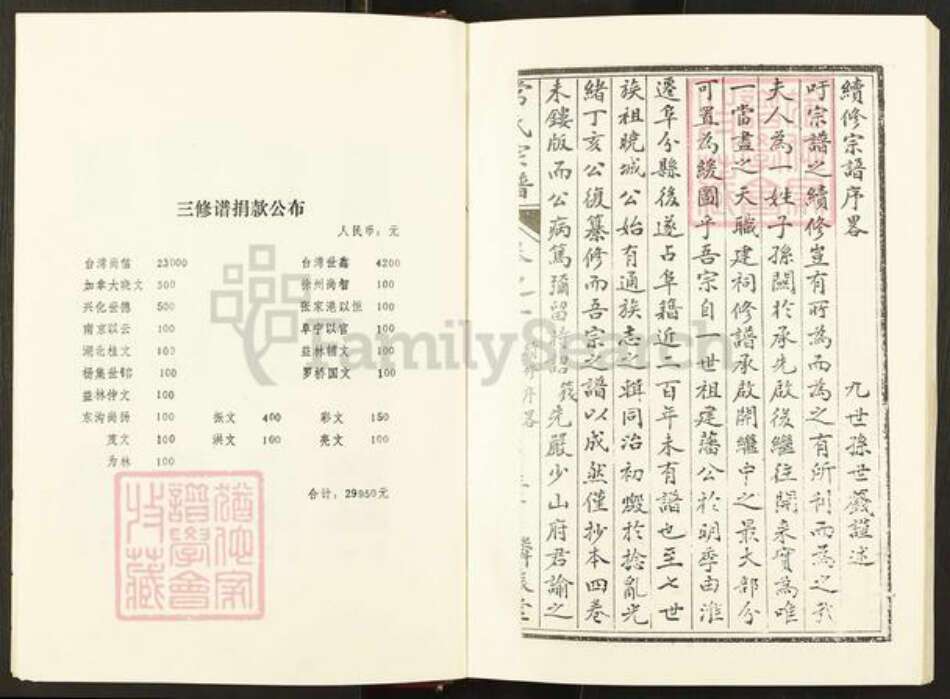 三修谱捐款公布
人民币：元
台湾尚信 23000 台湾世鑫 4200
加拿大晓文 500 徐州尚智 100
兴化世德 500 张家港以恒 100
南京以云 100 阜宁以官 100
湖北桂文 100 益林辅文 100
杨集世 100 罗桥国文 100
益林仲文 100
东沟尚扬 100 张文 400 彩文 150
茂文 100 洪文 100 亮文 100
为林 100
合计：29950元
FamilySearch
續修宗譜序畧
九世孫世籛謹述
吁宗譜之續修豈有所為而為之有所利而為之哉
夫人為一姓子孫關於承先啟後繼往開來實為唯
一當盡之天職建祠修譜承啟開繼中之最大部分
可置為緩圖乎吾宗自一世祖建藩公於明季由淮
遷阜分縣後遂占阜籍近二百年未有譜也至七世
族祖曉城公始有通族志之輯同治初燬於捻亂光
緒丁亥公復纂修而吾宗之譜以成然僅抄本四卷
未鏤版而公病篤彌留於詔籛先嚴少山府君諭之
氏宗譜
序畧